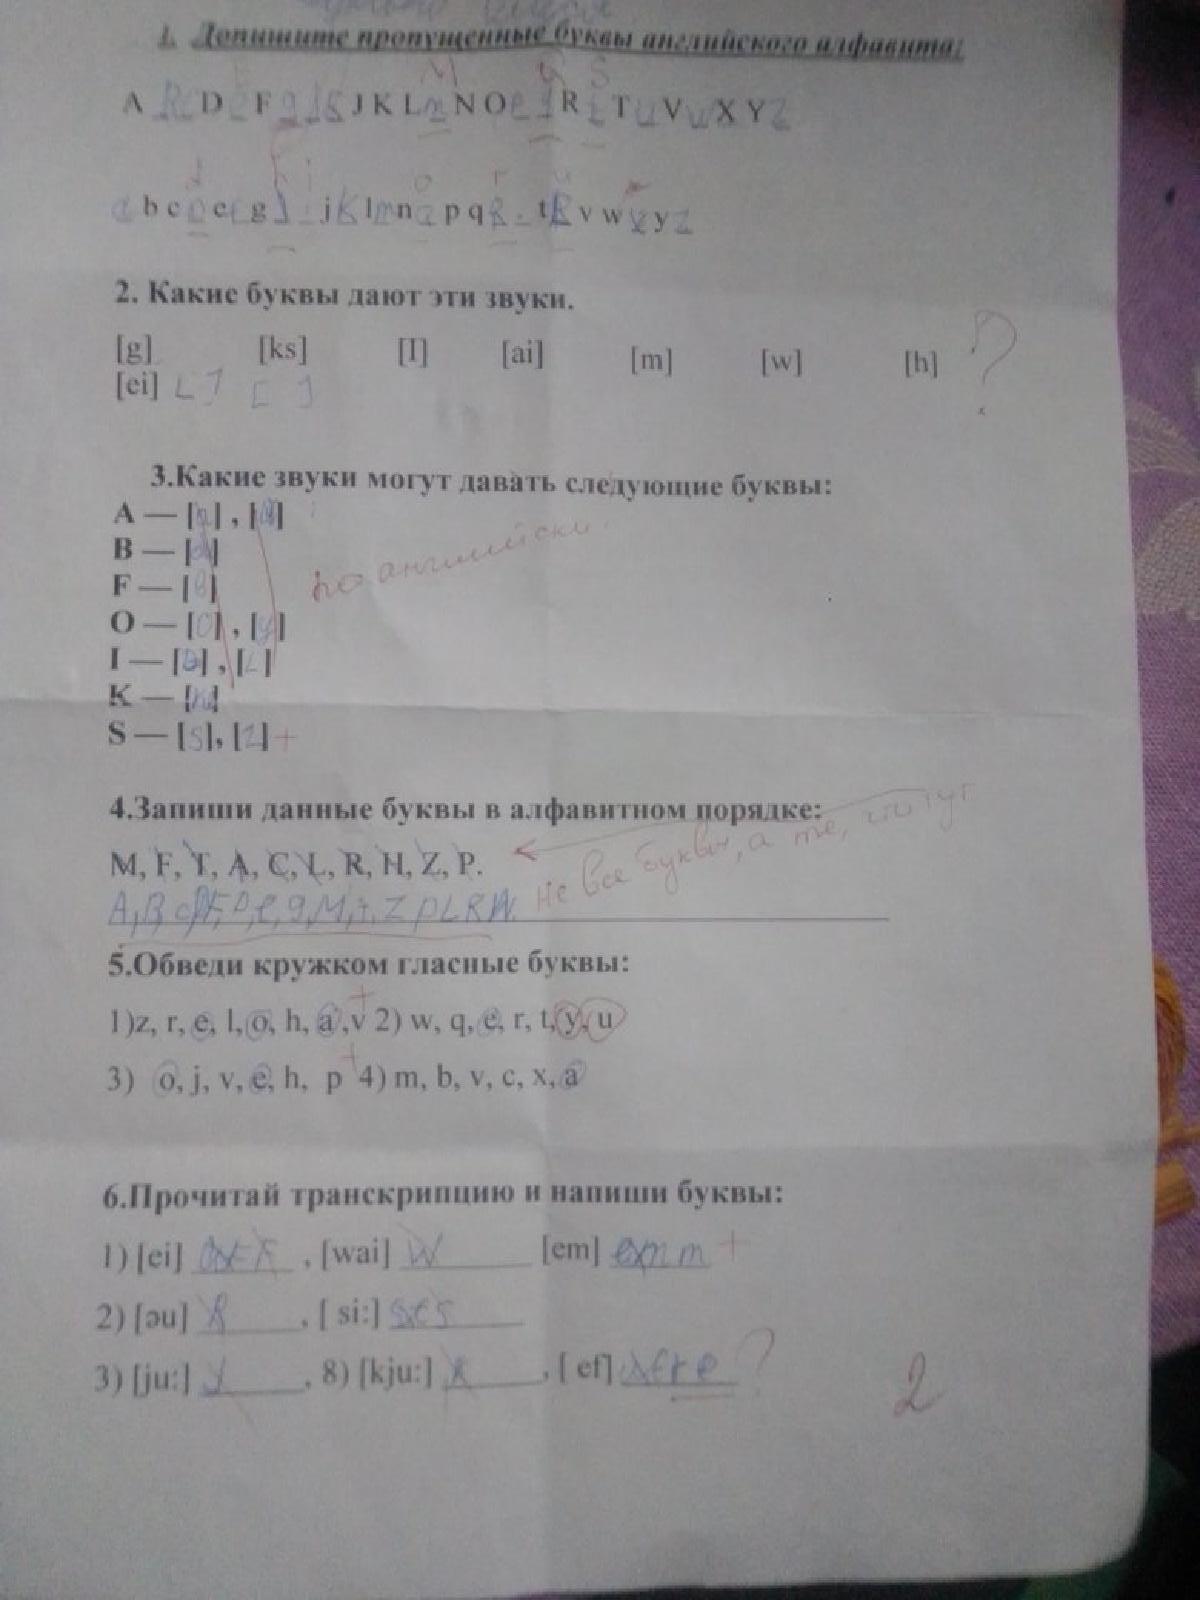 1. Допишите пропущенные буквы английского алфавита:
M S
A D F J K L N O R T u V w X Y Z
o r
b c c g j K l m n p q t v w y Z
2. Какие буквы дают эти звуки.
[g] [ks] [I] [ai] [m] [w] [h] ?
[ei] [ ] [ ]
3.Какие звуки могут давать следующие буквы:
A — [a] ,
B —
F — [в]
по английски.
O — [O] , [y]
I — , [L]
K —
S — [S], [Z] +
4.Запиши данные буквы в алфавитном порядке:
M, F, T, A, C, L, R, H, Z, P.
не все буквы, а те, что тут
A, B, c, F, D, e, g, M, Z P L R
5.Обведи кружком гласные буквы:
1)z, r, e, l, o, h, a ,v + 2) w, q, e, r, t, y, u
3) o, j, v, e, h, p + 4) m, b, v, c, x, a
6.Прочитай транскрипцию и напиши буквы:
1) [ei] , [wai] W [em] m +
2) [əu] , [ si:]
3) [ju:] , 8) [kju:] , [ ef] ?
2